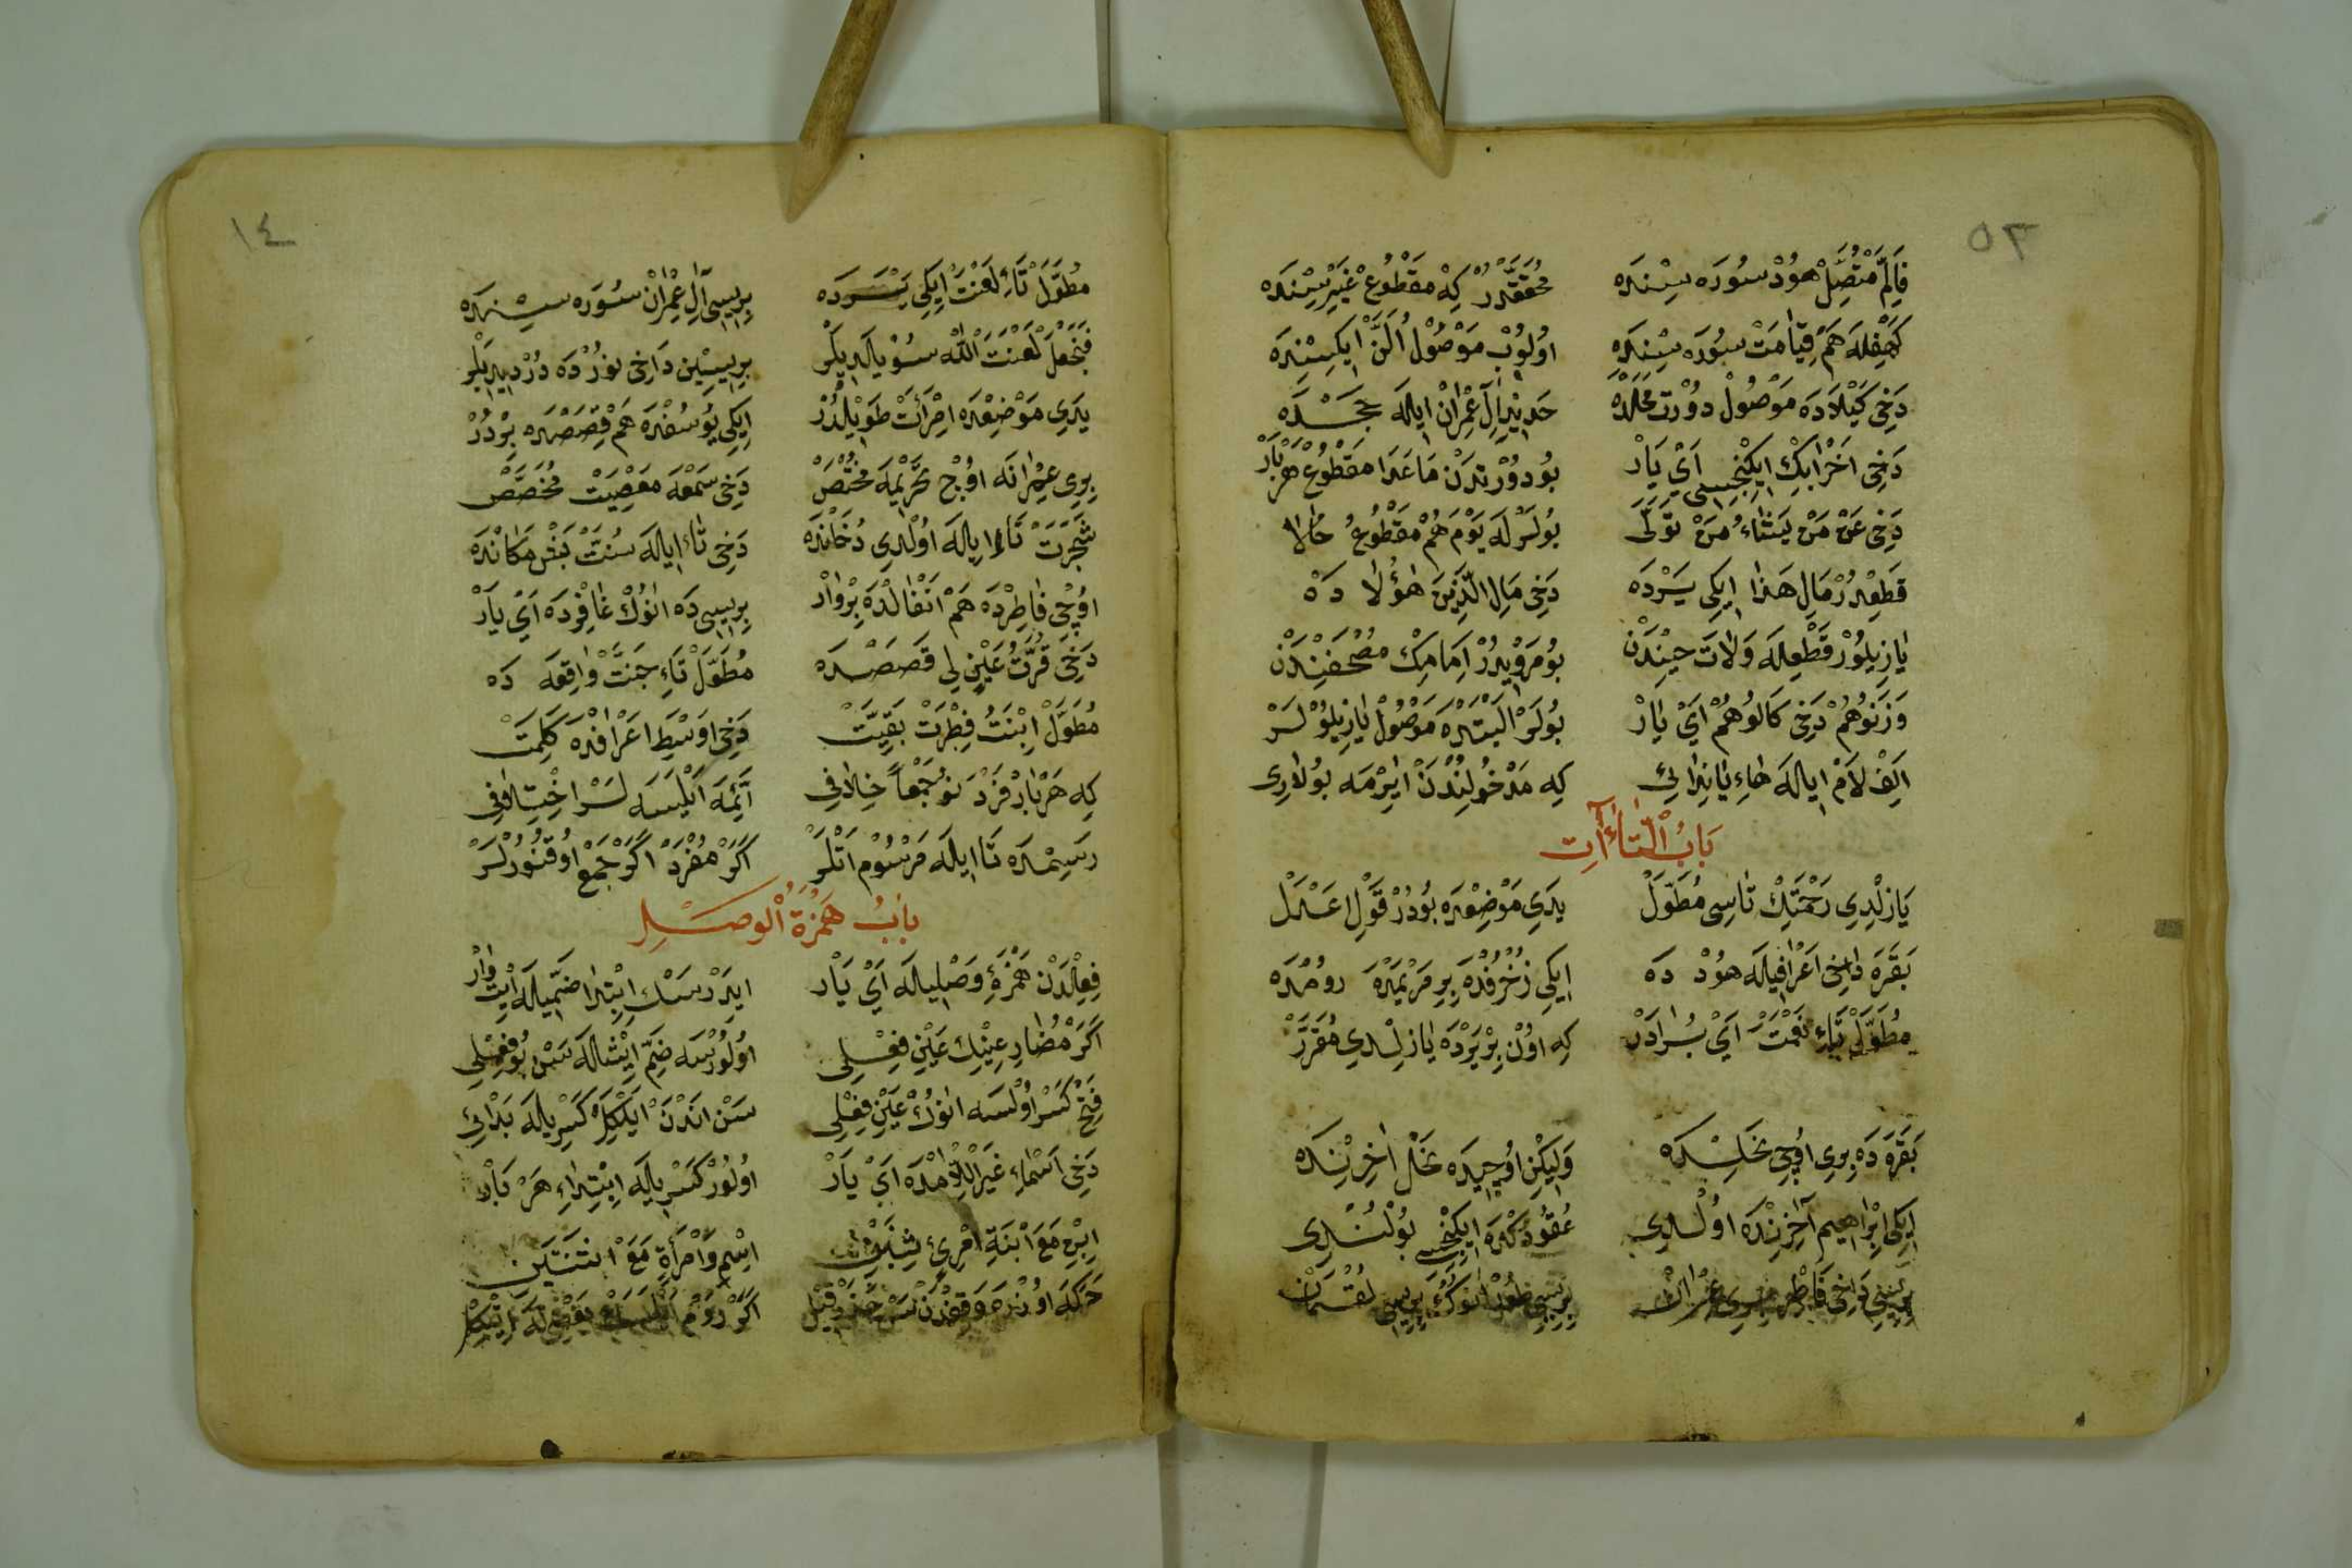 ٥٣
فَاِلَّمْ مُتَّصِلْ هُودْ سُورَه سِنْدَه مُحَقَّقْدُرْ كِه مَقْطُوعْ غَيْرِيسِنْدَه
كَهْفِلَه هَمْ قِيَامَتْ سُورَه سِنْدَه اوُلُوبْ مَوْصُولْ اَلَّنْ اِيكِيسِنْدَه
دَخِى كَيْلَادَه مَوْصُولْ دُورْتْ مَحَلْدَه حَدِيد اٰلِ عِمْرَانْ اِيلَه حَجْدَه
دَخِى اَحْزَابِكْ اِيكِنْجِيسِى اَىْ يَارْ بُو دُورْتْدَنْ مَاعَدَا مَقْطُوعْ هَرْ بَارْ
دَخِى عَنْ مَنْ يَشَاءُ مَنْ تَوَلَّى بُولَرْلَه يَوْمَ هُمْ مَقْطُوعُ حَالَا
قَطَعِدُرْ مَالِ هٰذَا اِيكِى يَرْدَه دَخِى مَالِ الَّذِينَ هٰؤُلَا دَه
يَازِيلُورْ قَطْعِلَه وَلَاتَ حِينْدَنْ بُو مَرْوِيدُرْ اِمَامِكْ مُصْحَفِنْدَنْ
وَزَنُوهُمْ دَخِى كَالُوهُمْ اَىْ يَارْ بُولَرْ اَلْبَتَّدَه مَوْصُولْ يَازِيلُورْلَرْ
اَلِفْ لَامْ اِيلَه هَاءِ يَا نِدَايِى كِه مَدْخُولِنْدَنْ اَيِرْمَه بُولَارِى
بَابُ التَّاآتِ
يَازِلْدِى رَحْمَتِكْ تَاسِى مُطَوَّلْ يَدِى مَوْضِعْدَه بُودُرْ قَوْلِ اَعْدَلْ
بَقَرَه دَاخِى اَعْرَافِيلَه هُودْ دَه اِيكِى زُخْرُفْدَه بِرِ مَرْيَمْدَه رُومْدَه
مُطَوَّلْ تَاءِ نِعْمَتْ اَىْ بُرَادَرْ كِه اوُنْ بِرْ يَرْدَه يَازِلْدِى مُقَرَّرْ
بَقَرَه دَه بِرِى اوُچِى نَحْلِدَه وَلِيكِنْ اوُچِيدَه نَحْلْ اٰخِرِنْدَه
اِيكِى اِبْرَاهِيمِ اٰخِرِنْدَه اوُلْدِى عُقُودْدَه اِيكِنْجِيسِى بُولُنْدِى
بِرِيسِى دَاخِى فَاطِرْ بِرِى عِمْرَانْ بِرِيسِى طُورْ اٰنُوكْ بِرِيسِى لُقْمَانْ
١٤
مُطَوَّلْ تَاءِ لَعْنَتْ اِيكِى يَرْدَه بِرِيسِى اٰلِ عِمْرَانْ سُورَه سِنْدَه
فَنَجْعَلْ لَعْنَتَ اللّٰه سُويلَدِيلَرْ بِرِيسِينْ دَاخِى نُورْدَه دُرْ دِيدِيلَرْ
يَدِى مَوْضِعْدَه اِمْرَأَتْ طَوِيلْدُرْ اِيكِى يُوسُفْدَه هَمْ قَصَصْدَه بِرْدُرْ
بِرِى عِمْرَانَه اوُچْ تَحْرِيمَه مُخْتَصْ دَخِى سَمْعَه مَعْصِيَتْ مُخَصَّصْ
شَجَرَتْ تَا اِيلَه اوُلْدِى دُخَانْدَه دَخِى تَا اِيلَه سُنَّتْ بَشْ مَكَانْدَه
اوُچِى فَاطِرْدَه هَمْ اَنْفَالْدَه بِرْ وَارْ بِرِيسِى دَه اٰنُوكْ غَافِرْدَه اَىْ يَارْ
دَخِى قُرَّتُ عَيْنٍ لِى قَصَصْدَه مُطَوَّلْ تَاءِ جَنَّتْ وَاقِعَه دَه
مُطَوَّلْ اِبْنَتُ فِطْرَتْ بَقِيَّتْ دَخِى اَوْسَطِ اَعْرَافْدَه كَلِمَتْ
كِه هَرْ بَارْ فَرْدَنُ جَمْعًا خِلَافِى اَئِمَّه اَيْلَيَسَه لَرْ اِخْتِلَافِى
رَسِمْدَه تَا اِيلَه مَرْسُومْ اَنْلَرْ اَكَرْ مُفْرَدْ اَكَرْ جَمْعْ اوُقُنُورْلَرْ
بَابُ هَمْزَةُ الْوَصْلِ
فِعِلْدَنْ هَمْزَءِ وَصْلِيلَه اَىْ يَارْ اِيدَرْسَكْ اِبْتِدَا ضَمِّيلَه اِيتْ وَارْ
اَكَرْ مُضَارِعِينِكْ عَيْنِ فِعْلِى اوُلُورْسَه ضَمِّ اِيشْلَه سَنْ بُو فِعْلِى
فَتْحْ كَسْرْ اوُلْسَه اٰنُوكْ عَيْنِ فِعْلِى سَنْ اَنْدَنْ اَيْلَكِلْ كَسْرِيلَه بَدْاِى
دَخِى اَسْمَاءِ غَيْرَ اللَّامْدَه اَىْ يَارْ اوُلُورْ كَسْرِيلَه اِبْتِدَاءِ هَرْ بَارْ
اِبْنِ مَعَ ابْنَةِ امْرِئٍ اسْمٍ وَامْرَأَةٍ مَعَ اثْنَتَيْنِ